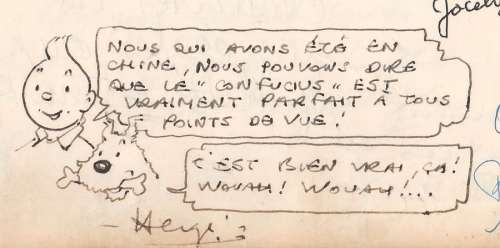 Jocely
NOUS QUI AVONS ÉTÉ EN
CHINE, NOUS POUVONS DIRE
QUE LE "CONFUCIUS" EST
VRAIMENT PARFAIT À TOUS
POINTS DE VUE!
C'EST BIEN VRAI, ÇA!
WOUAH! WOUAH!...
Hergé